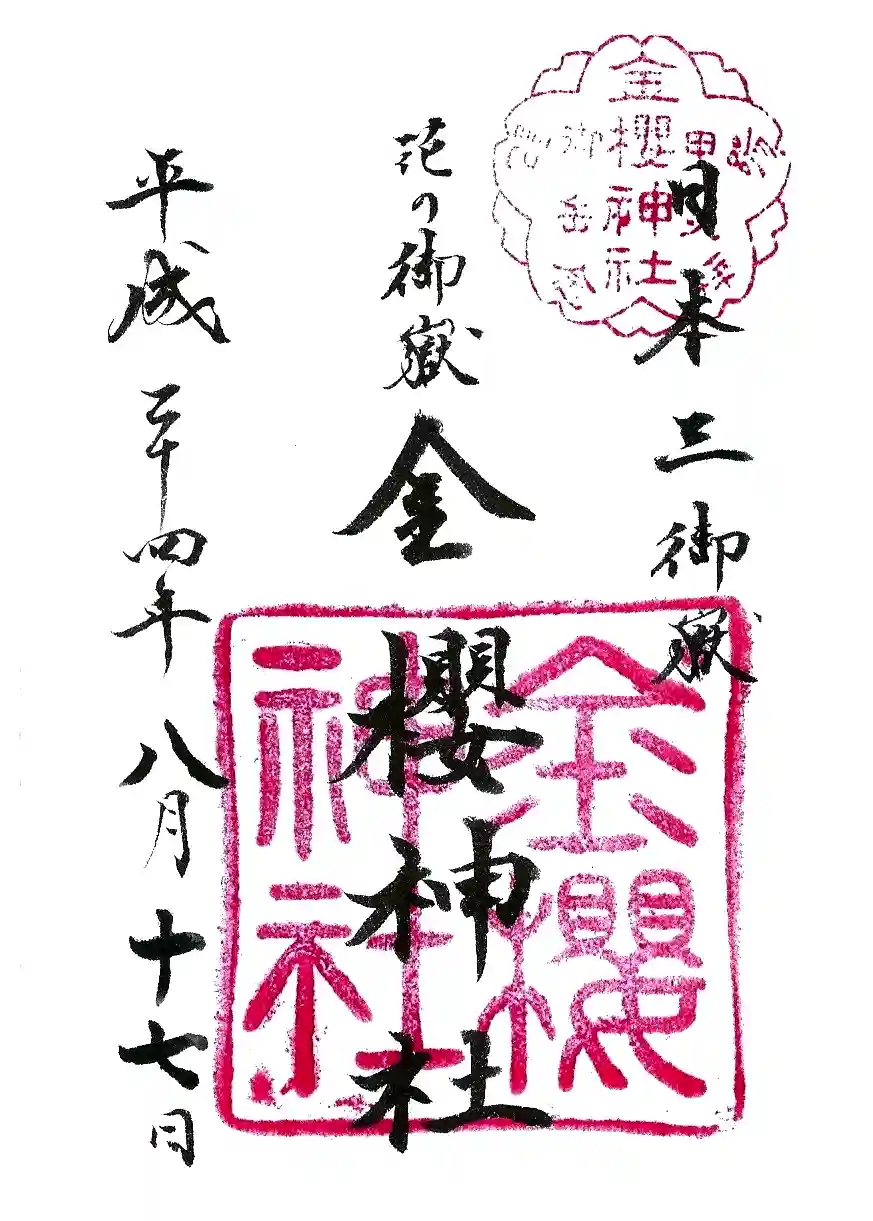 日本三御嶽
金櫻神社
花の御嶽
金櫻神社
平成二十四年八月十七日
金櫻神社